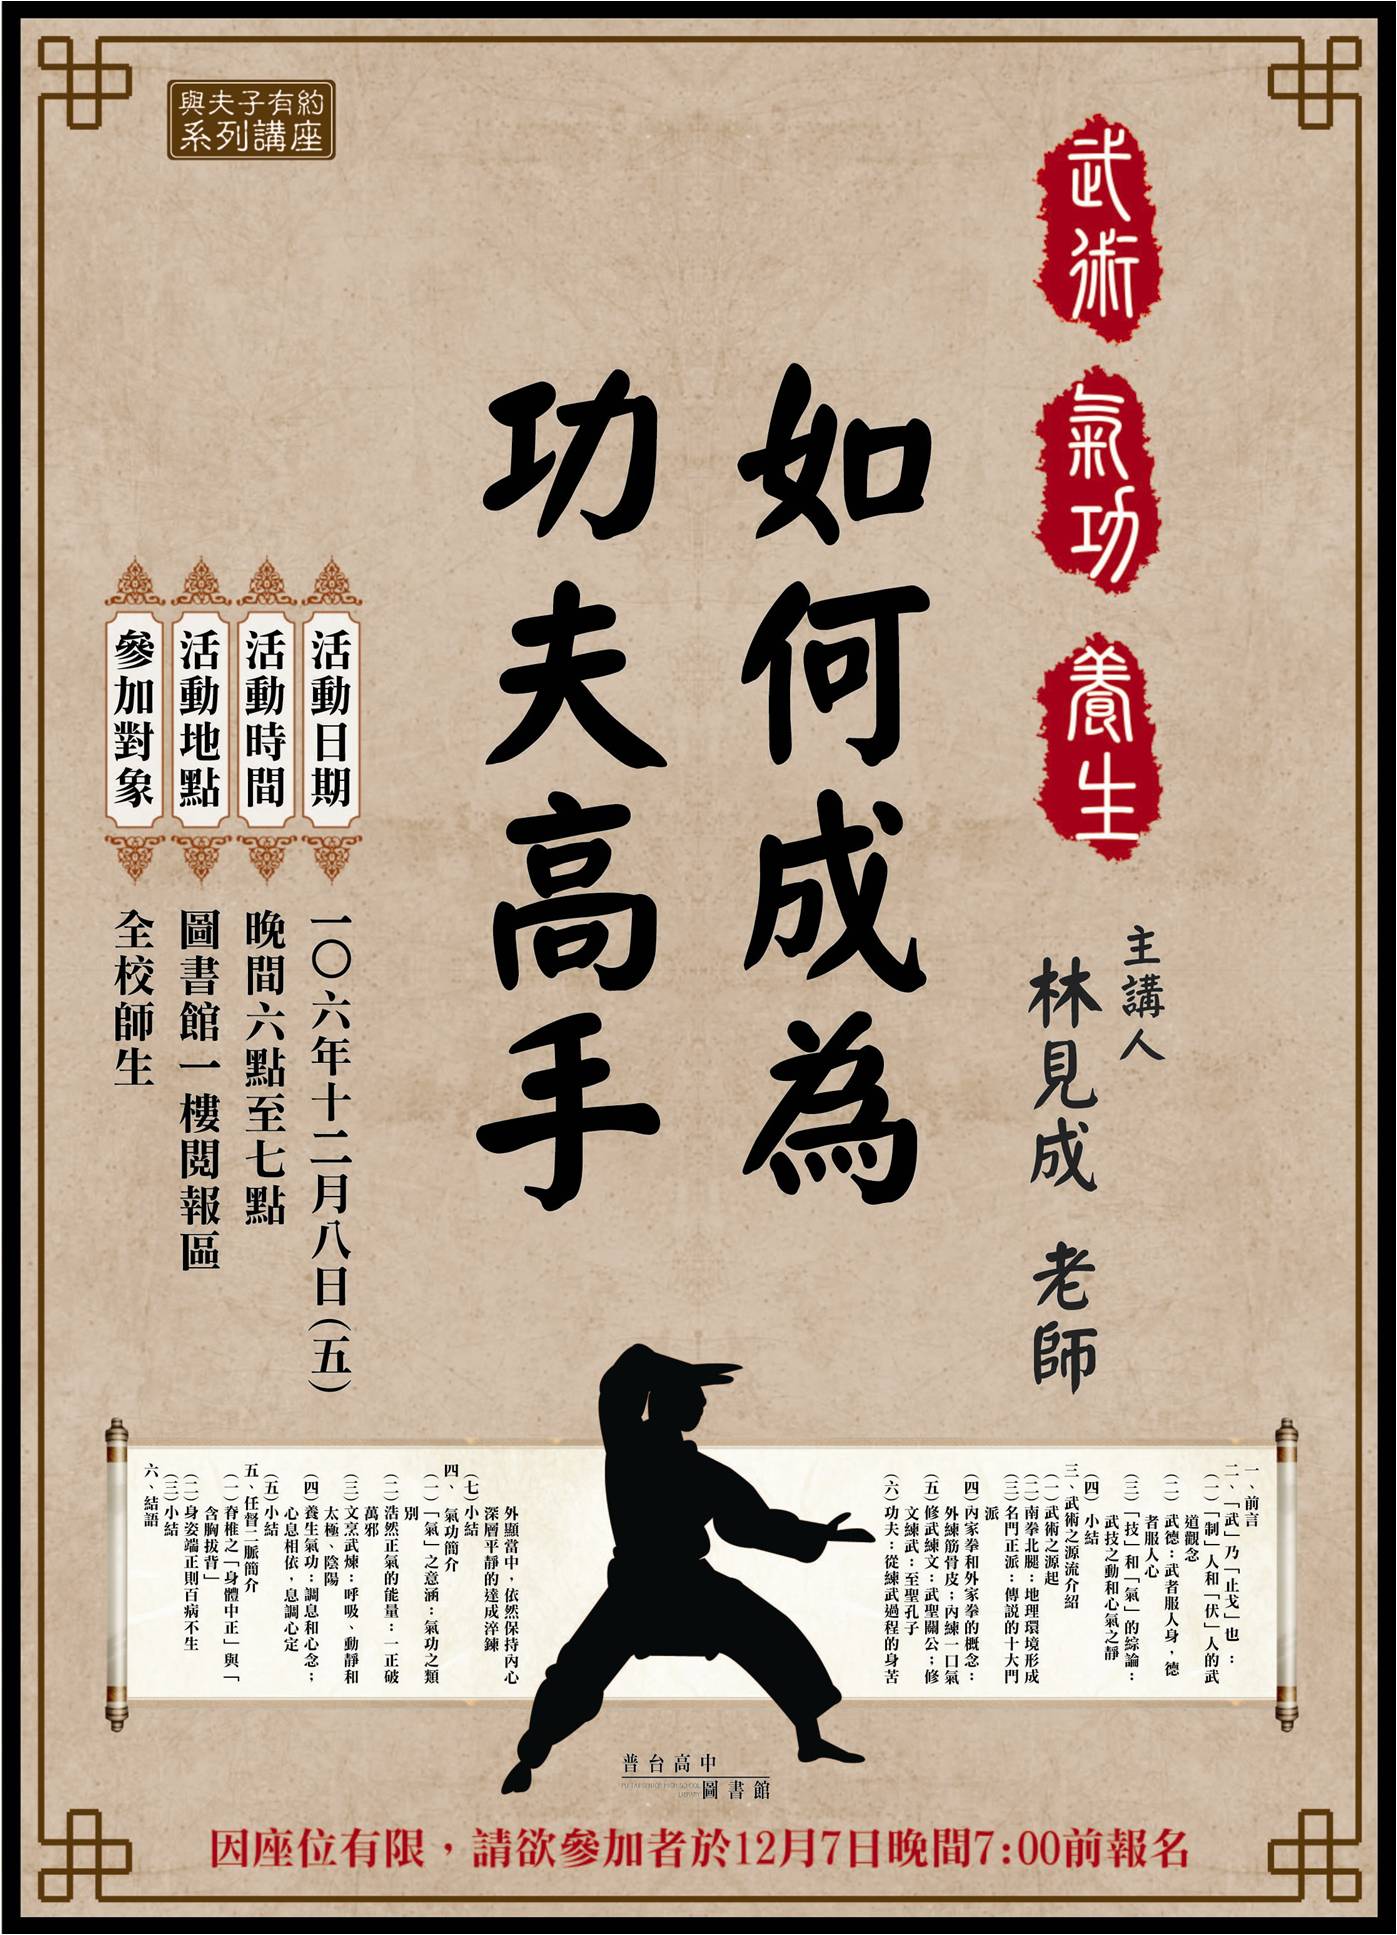 與夫子有約
系列講座
武術
氣功
養生
主講人
林見成 老師
如何成為
功夫高手
活動日期
一〇六年十二月八日(五)
活動時間
晚間六點至七點
活動地點
圖書館一樓閱報區
參加對象
全校師生
一、前言
二、「武」乃「止戈」也：
(一)「制」人和「伏」人的武
道觀念
(二)武德：武者服人身，德
者服人心
(三)「技」和「氣」的綜論：
武技之動和心氣之靜
(四)小結
三、武術之源流介紹
(一)武術之源起
(二)南拳北腿：地理環境形成
(三)名門正派：傳說的十大門
派
(四)內家拳和外家拳的概念：
外練筋骨皮；內練一口氣
(五)修武練文：武聖關公；修
文練武：至聖孔子
(六)功夫：從練武過程的身苦
外顯當中，依然保持內心
深層平靜的達成淬鍊
(七)小結
四、氣功簡介
(一)「氣」之意涵：氣功之類
別
(二)浩然正氣的能量：一正破
萬邪
(三)文烹武煉：呼吸、動靜和
太極、陰陽
(四)養生氣功：調息和心念；
心息相依，息調心定
(五)小結
五、任督二脈簡介
(一)脊椎之「身體中正」與「
含胸拔背」
(二)身姿端正則百病不生
(三)小結
六、結語
普台高中
PU TAI SENIOR HIGH SCHOOL
LIBRARY
圖書館
因座位有限，請欲參加者於12月7日晚間7:00前報名